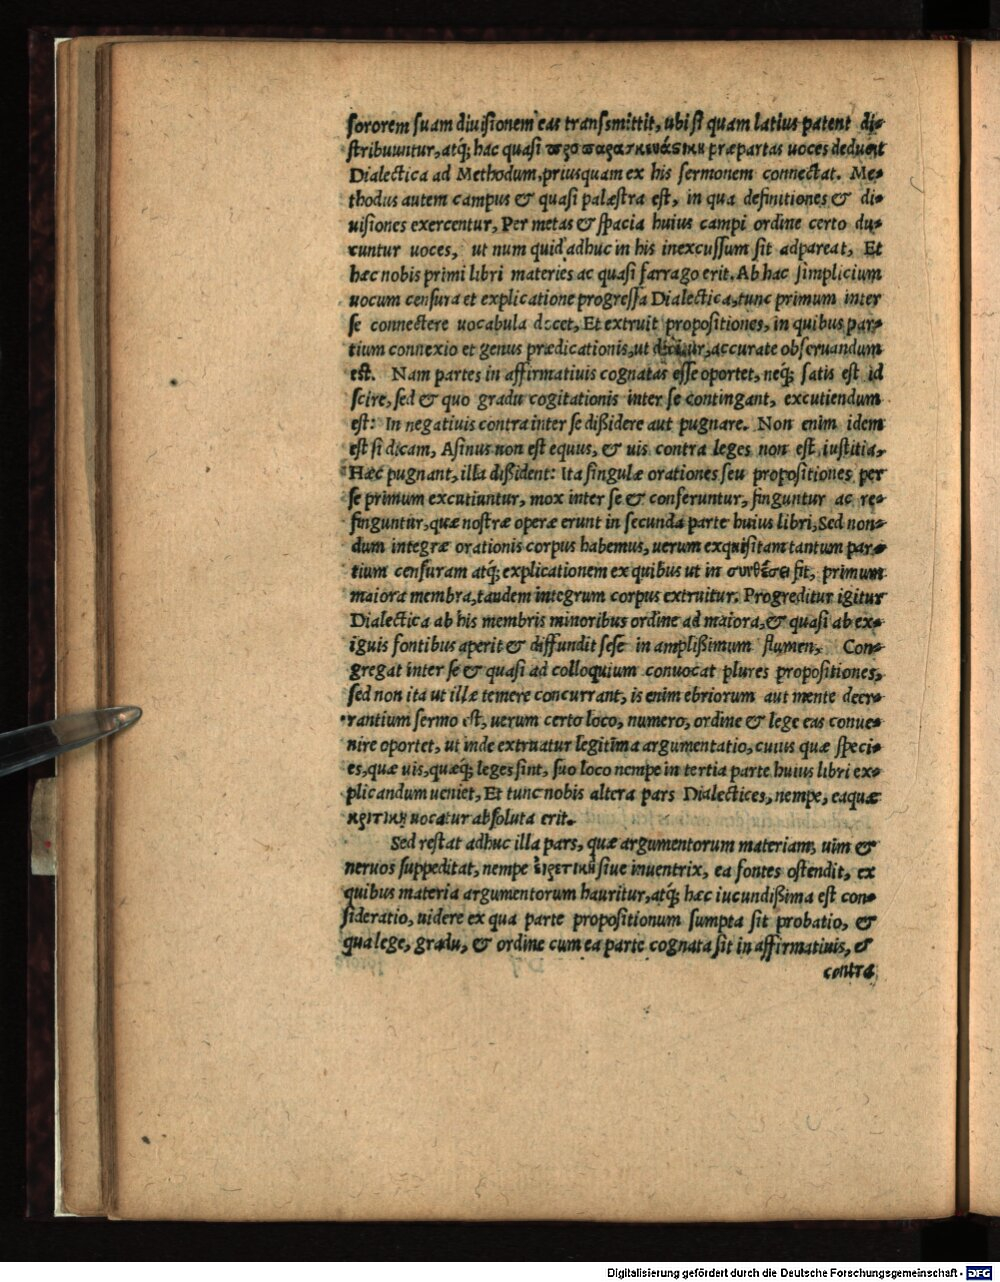 sororem suam diuisionem eas transsmittit, ubi si quam latius patent di-
stribuuntur, atq; hac quasi προπαρασκευάστικη præpartas uoces deducit
Dialectica ad Methodum, priusquam ex his sermonem connectat. Me-
thodus autem campus & quasi palæstra est, in qua definitiones & di-
uisiones exercentur, Per metas & spacia huius campi ordine certo du-
cuntur uoces, ut num quid adhuc in his inexcussum sit adpareat, Et
hæc nobis primi libri materies ac quasi farrago erit. Ab hac simplicium
uocum censura et explicatione progressa Dialectica, tunc primum inter
se connectere uocabula docet, Et extruit propositiones, in quibus par-
tium connexio et genus prædicationis, ut dicitur, accurate obseruandum
est. Nam partes in affirmatiuis cognatas esse oportet, neq; satis est id
scire, sed & quo gradu cogitationis inter se contingant, excutiendum
est: In negatiuis contra inter se dißidere aut pugnare. Non enim idem
est si dicam, Asinus non est equus, & uis contra leges non est iustitia,
Hæc pugnant, illa dißident: ita singulæ orationes seu propositiones per
se primum excutiuntur, mox inter se & conferuntur, finguntur ac re-
finguntur, quæ nostræ operæ erunt in secunda parte huius libri, Sed non-
dum integræ orationis corpus habemus, uerum exquisitam tantum par-
tium censuram atq; explicationem ex quibus ut in συνθέσει fit, primum
maiora membra, tandem integrum corpus extruitur. Progreditur igitur
Dialectica ab his membris minoribus ordine ad maiora, & quasi ab ex-
iguis fontibus aperit & diffundit sese in amplißimum flumen, Con-
gregat inter se & quasi ad colloquium conuocat plures propositiones,
sed non ita ut illæ temere concurrant, is enim ebriorum aut mente decr-
rantium sermo est, uerum certo loco, numero, ordine & lege eas conue-
nire oportet, ut inde extruatur legitima argumentatio, cuius quæ speci-
es, quæ uis, quæq; leges sint, suo loco nempe in tertia parte huius libri ex-
plicandum ueniet, Et tunc nobis altera pars Dialectices, nempe, ea quæ
κριτικὴ uocatur absoluta erit.
Sed restat adhuc illa pars, quæ argumentorum materiam, uim &
neruos suppeditat, nempe ἑυρετικὴ siue inuentrix, ea fontes ostendit, ex
quibus materia argumentorum hauritur, atq; hæc iucundißima est con-
sideratio, uidere ex qua parte propositionum sumpta sit probatio, &
qua lege, gradu, & ordine cum ea parte cognata sit in affirmatiuis, &
contra
Digitalisierung gefördert durch die Deutsche Forschungsgemeinschaft - DFG